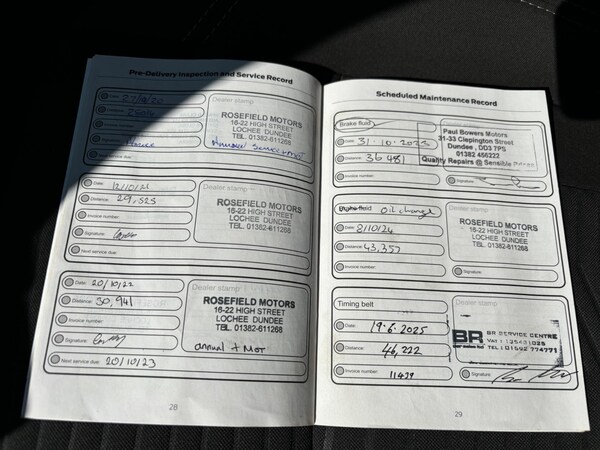 Pre-Delivery Inspection and Service Record
Dealer stamp
ROSEFIELD MOTORS
16-22 HIGH STREET
LOCHEE DUNDEE
TEL. 01382-611268
Next service due:
Date: 12/10/21
Distance: 29,525
Invoice number:
Signature:
Next service due:
Dealer stamp
ROSEFIELD MOTORS
16-22 HIGH STREET
LOCHEE DUNDEE
TEL. 01382-611268
Date: 20/10/22
Distance: 30,941
Invoice number:
Signature:
Next service due: 20/10/23
Dealer stamp
ROSEFIELD MOTORS
16-22 HIGH STREET
LOCHEE DUNDEE
TEL. 01382-611268
annual + MOT
28
Scheduled Maintenance Record
Brake fluid
Date: 31.10.2023
Distance: 36 481
Invoice number:
Paul Bowers Motors
31-33 Clepington Street
Dundee, DD3 7PS
01382 456222
Quality Repairs @ Sensible Prices
Signature:
Brake fluid Oil change
Date: 8/10/24
Distance: 43,357
Invoice number:
Dealer stamp
ROSEFIELD MOTORS
16-22 HIGH STREET
LOCHEE DUNDEE
TEL. 01382-611268
Signature:
Timing belt
Date: 19.6.2025
Distance: 46,222
Invoice number: 11439
Dealer stamp
BR
BR SERVICE CENTRE
TEL: 01592 774771
Signature:
29